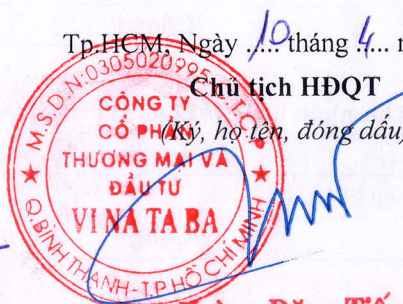 Tp.HCM, Ngày ..10.. tháng ..4..
Chủ tịch HĐQT
(Ký, họ tên, đóng dấu
M.S.D.N:0305020995-C.T.C.P
CÔNG TY
CỔ PHẦN
THƯƠNG MẠI VÀ
ĐẦU TƯ
VINATABA
Q.BÌNH THẠNH-T.P HỒ CHÍ MINH